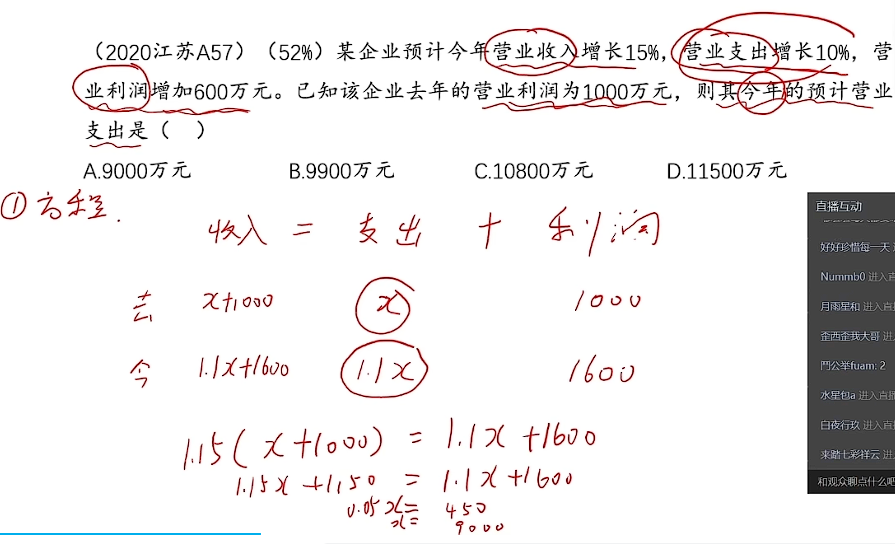 （2020江苏A57）（52%）某企业预计今年营业收入增长15%，营业支出增长10%，营
业利润增加600万元。已知该企业去年的营业利润为1000万元，则其今年的预计营业
支出是（ ）
A.9000万元 B.9900万元 C.10800万元 D.11500万元
①方程.
收入 = 支出 + 利润
去 x+1000 x 1000
今 1.1x+1600 1.1x 1600
1.15(x+1000) = 1.1x+1600
1.15x+1150 = 1.1x+1600
0.05x= 450
x= 9000
直播互动
好好珍惜每一天
Nummb0 进入直
月雨星和 进入直
歪西歪我大哥 进
鬥公举fuam: 2
水星包a 进入直播
白夜行玖 进入直
来踏七彩祥云 进
和观众聊点什么吧